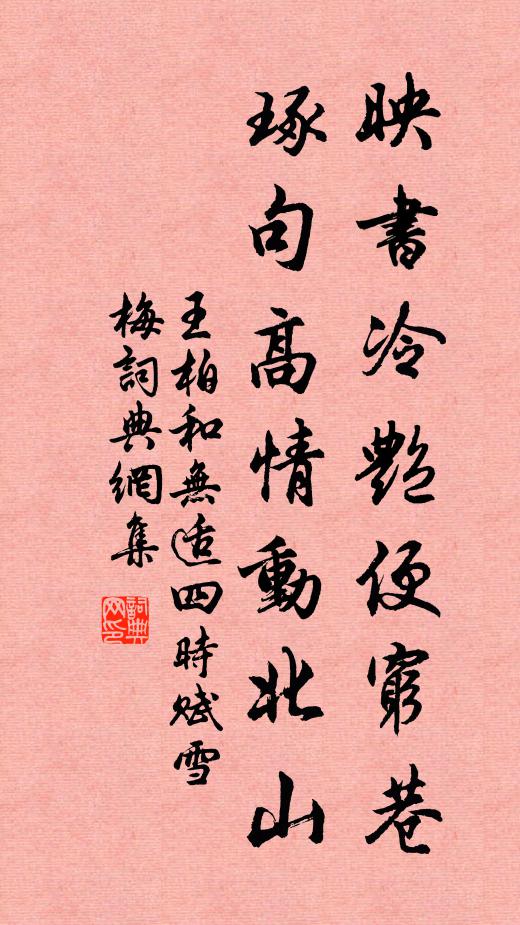 映書冷艷便窮巷
琢句高情動北山
王柏和無适四時賦雪
梅詞典網集
詞典网印